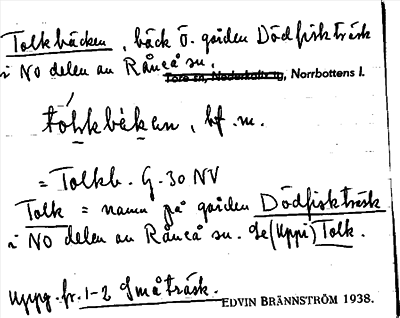 Tolkbäcken, bäck Ö. gården Dödfiskträsk
i NO delen av Råneå sn.
Töre sn, Nederkalix tg, Norrbottens l.
tólkbèkan, bf. m.
= Tolkb. G. 30 NV
Tolk = namn på gården Dödfiskträsk
i NO delen av Råneå sn. Se (Uppi) Tolk.
Uppg. fr. 1-2 Småträsk.
EDVIN BRÄNNSTRÖM 1938.